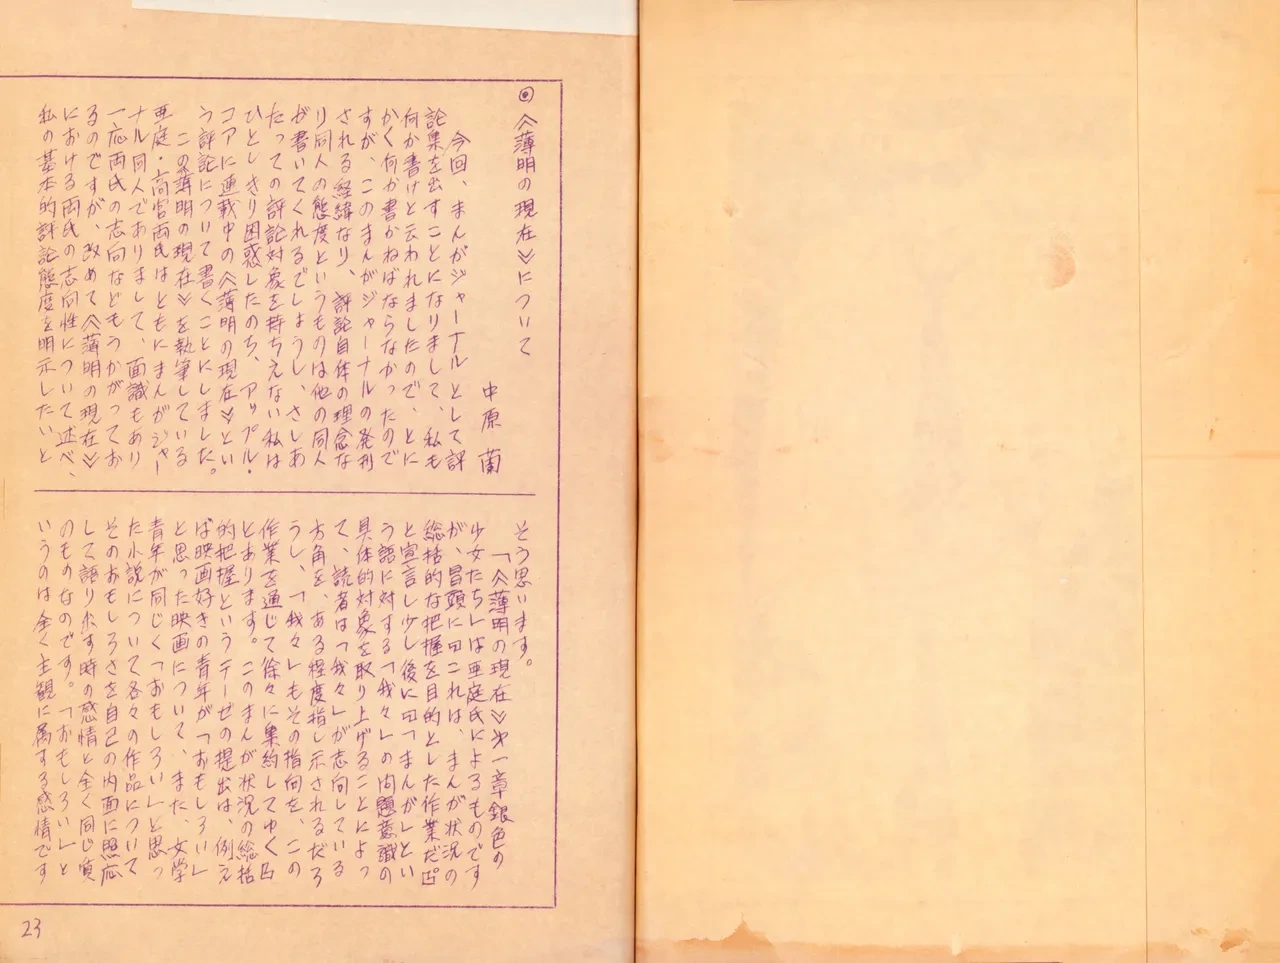 ◎《薄明の現在》について
中原 蘭
今回、まんがジャーナルとして評
論集を出すことになりまして、私も
何か書けと云われましたので、とに
かく何か書かねばならなかったので
すが、このまんがジャーナルの発刊
される経緯なり、評論自体の理念な
り同人の態度というものは他の同人
が書いてくれるでしょうし、さしあ
たっての評論対象を持ちえない私は
ひとしきり困惑したのち、アップル・
コアに連載中の《薄明の現在》とい
う評論について書くことにしました。
この《薄明の現在》を執筆している
亜庭・高宮両氏はともにまんがジャー
ナル同人でありまして、面識もあり
一応両氏の志向などもうかがってお
るのですが、改めて《薄明の現在》
における両氏の志向性について述べ、
私の基本的評論態度を明示したいと
そう思います。
「《薄明の現在》第一章銀色の
少女たち」は亜庭氏によるものです
が、冒頭に『これは、まんが状況の
総括的な把握を目的とした作業だ。』
と宣言し少し後に『「まんが」とい
う語に対する「我々」の問題意識の
具体的対象を取り上げることによっ
て、読者は「我々」が志向している
方角を、ある程度指し示されるだろ
うし、「我々」もその指向を、この
作業を通じて徐々に集約してゆく』
とあります。このまんが状況の総括
的把握というテーゼの提出は、例え
ば映画好きの青年が「おもしろい」
と思った映画について、また、文学
青年が同じく「おもしろい」と思っ
た小説について各々の作品について
そのおもしろさを自己の内面に照応
して語り示す時の感情と全く同じ質
のものなのです。「おもしろい」と
いうのは全く主観に属する感情です
23